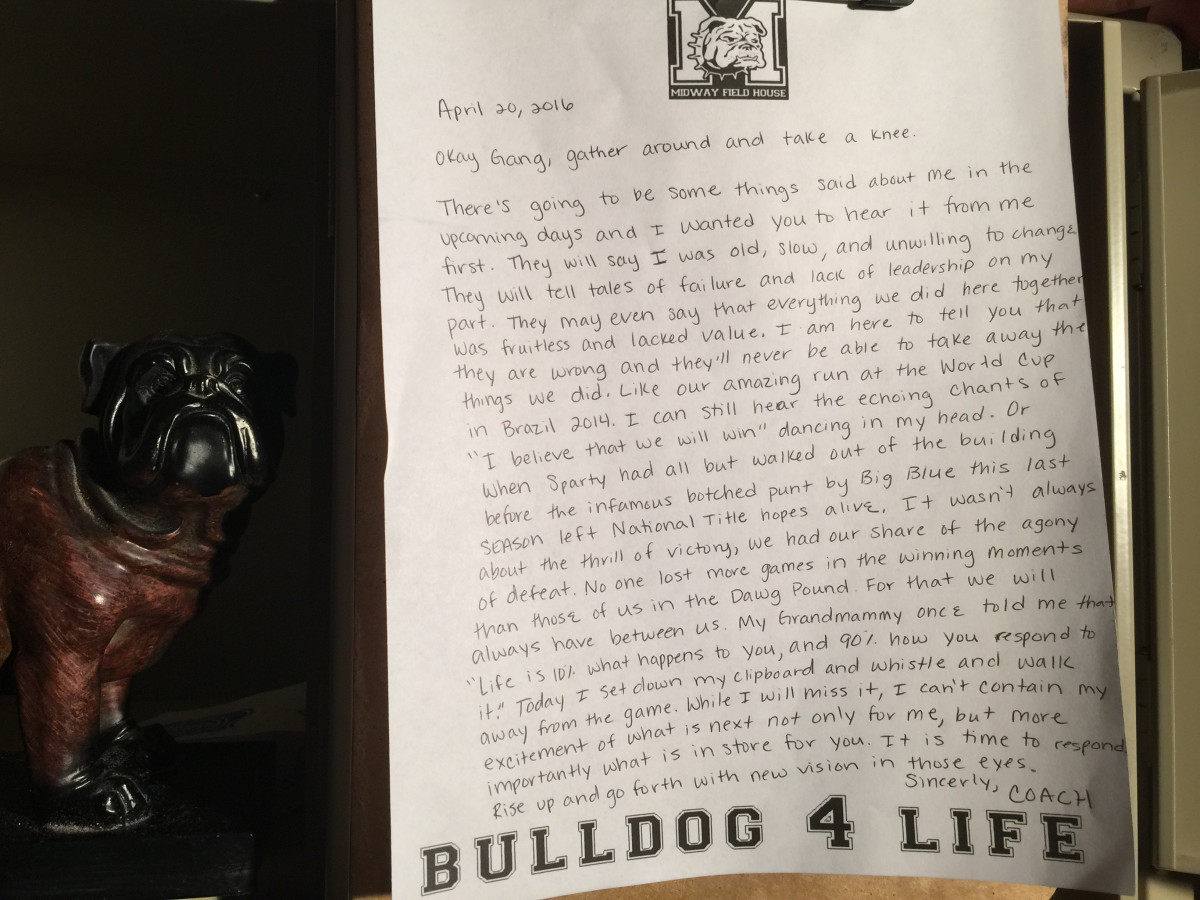 M
MIDWAY FIELD HOUSE
April 20, 2016
Okay Gang, gather around and take a knee.
There's going to be some things said about me in the
upcoming days and I wanted you to hear it from me
first. They will say I was old, slow, and unwilling to change
They will tell tales of failure and lack of leadership on my
part. They may even say that everything we did here together
was fruitless and lacked value. I am here to tell you that
they are wrong and they'll never be able to take away the
things we did. Like our amazing run at the World Cup
in Brazil 2014. I can still hear the echoing chants of
"I believe that we will win" dancing in my head. Or
when Sparty had all but walked out of the building
before the infamous botched punt by Big Blue this last
season left National Title hopes alive. It wasn't always
about the thrill of victory, we had our share of the agony
of defeat. No one lost more games in the winning moments
than those of us in the Dawg Pound. For that we will
always have between us. My Grandmammy once told me that
"Life is 10% what happens to you, and 90% how you respond to
it." Today I set down my clipboard and whistle and walk
away from the game. While I will miss it, I can't contain my
excitement of what is next not only for me, but more
importantly what is in store for you. It is time to respond.
Rise up and go forth with new vision in those eyes.
Sincerly, COACH
BULLDOG 4 LIFE